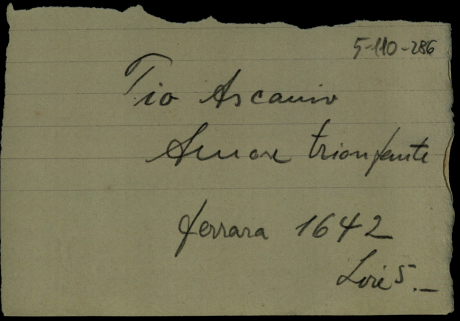 5-110-286
Pio Ascanio
Amore trionfante
ferrara 1642